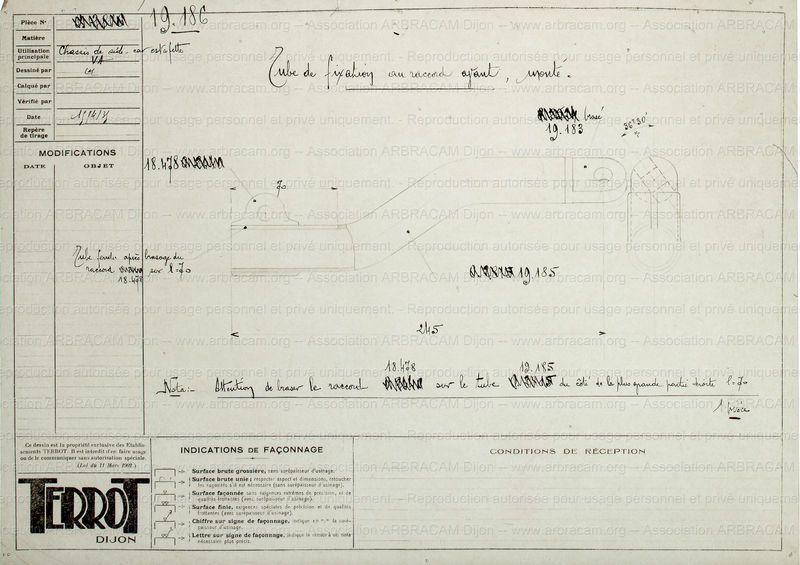 Pièce N°
19.186
Matière
Utilisation principale
Chassis de side-car estafette
VA
Dessiné par
Calqué par
Vérifié par
Date
Repère de tirage
MODIFICATIONS
DATE OBJET
Tube fendu après brasage du
raccord sur l=70
18.478
Tube de fixation au raccord ayant, monté.
brasé
19.183
36°30'
18.478
70
19.185
245
18.478 19.185
Nota:- Attention de braser le raccord sur le tube du côté de la plus grande partie droite l=70
1 pièce
Ce dessin est la propriété exclusive des Etablis-
sements TERROT. Il est interdit d'en faire usage
ou de le communiquer sans autorisation spéciale.
(Loi du 11 Mars 1902)
TERROT
DIJON
INDICATIONS DE FAÇONNAGE
Surface brute grossière, sans surépaisseur d'usinage.
Surface brute unie; respecter aspect et dimensions, retoucher
les rugosités s'il est nécessaire (sans surépaisseur d'usinage).
Surface façonnée sans exigences extrêmes de précision, et de
qualités frottantes (avec surépaisseur d'usinage).
Surface finie, exigences spéciales de précision et de qualités
frottantes (avec surépaisseur d'usinage).
Chiffre sur signe de façonnage, indique en m/m la suré-
paisseur d'usinage.
Lettre sur signe de façonnage, indique le renvoi à un nota
nécessaire plus précis.
CONDITIONS DE RÉCEPTION
Reproduction autorisée pour usage personnel et privé uniquement. - Reproduction autorisée pour usage personnel et privé uniquement.
www.arbracam.org -- Association ARBRACAM Dijon -- www.arbracam.org -- Association ARBRACAM Dijon